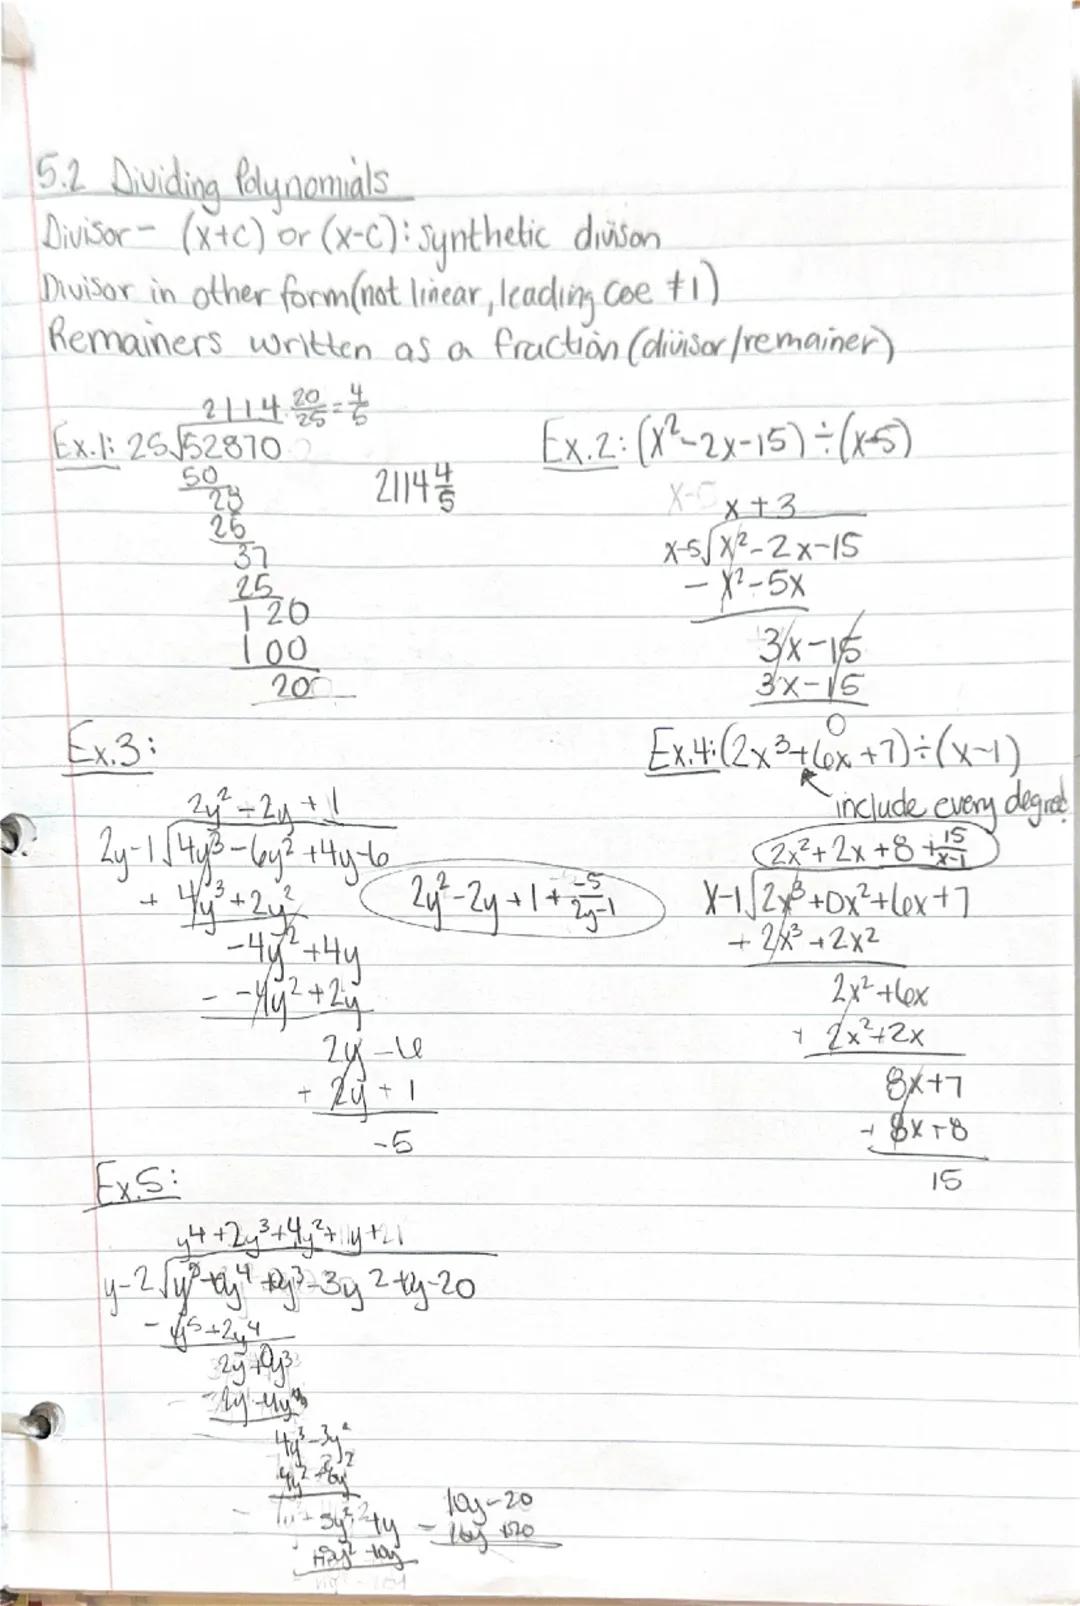 5.2 Dividing Polynomials
Divisor - (x+c) or (x-c): synthetic divison
Divisor in other form (not linear, leading coe ≠1)
Remainers written as a fraction (divisor/remainer)
2114 20/25 = 4/5
Ex.1: 25√52870
50
28
25
37
25
120
100
20
2114 4/5
Ex.2: (x²-2x-15)÷(x-5)
x+3
x-5√x²-2x-15
- x²-5x
3x-15
3x-15
0
Ex.3:
2y²-2y+1
2y-1√4y³-6y²+4y-6
+ 4y³+2y²
-4y²+4y
- -4y²+2y
2y-6
+ 2y+1
-5
2y²-2y+1+ -5/2y-1
Ex.4: (2x³+6x+7)÷(x-1)
include every degree
2x²+2x+8+ 15/x-1
x-1√2x³+0x²+6x+7
+ 2x³+2x²
2x²+6x
+ 2x²+2x
8x+7
+ 8x+8
15
Ex.5:
y⁴+2y³+4y²+
y-2√y⁵+0y⁴+0y³-3y²+y-20
- y⁵+2y⁴
4y³-3y²
10y-20